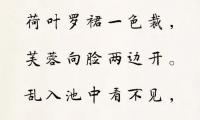 荷叶罗裙一色裁，
芙蓉向脸两边开。
乱入池中看不见，